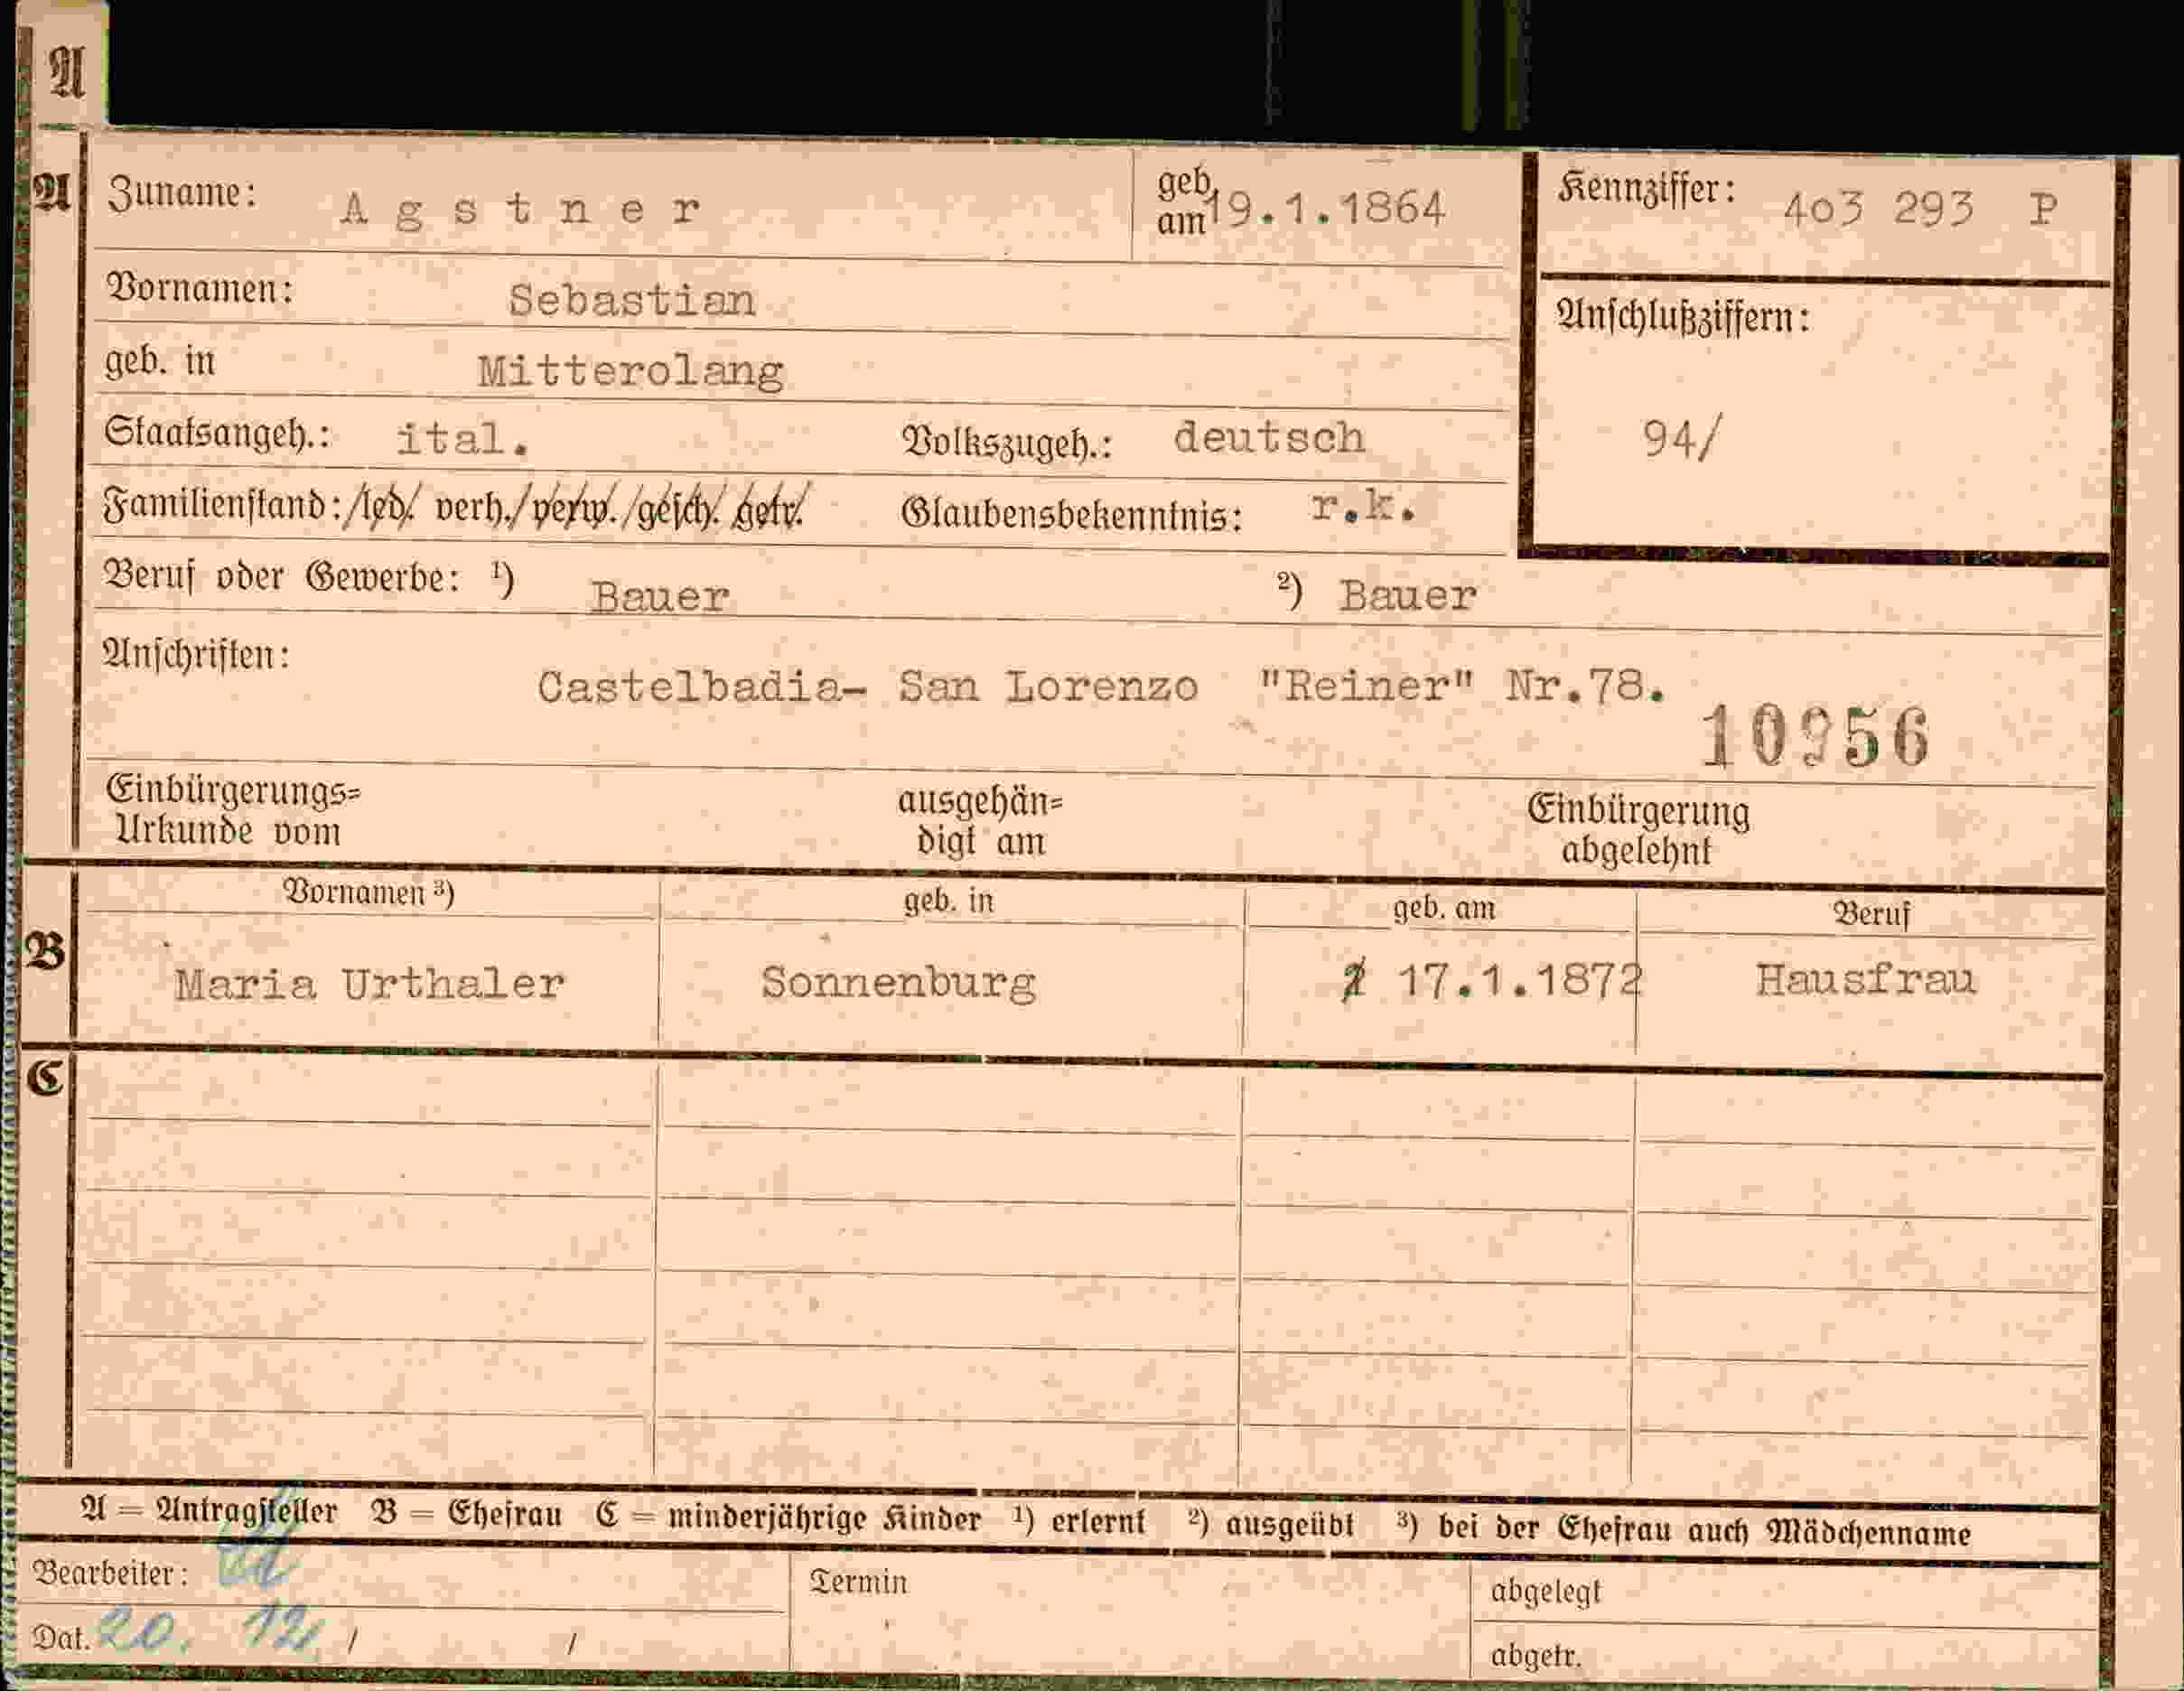 A
A Zuname: Agstner geb. am 19.1.1864 Kennziffer: 403 293 P
Vornamen: Sebastian
Anschlußziffern:
geb. in Mitterolang
Staatsangeh.: ital. Volkszugeh.: deutsch 94/
Familienstand: /led/. verh./verw./gesch. getr. Glaubensbekenntnis: r.k.
Beruf oder Gewerbe: ¹) Bauer ²) Bauer
Anschriften:
Castelbadia- San Lorenzo "Reiner" Nr.78.
Einbürgerungs= ausgehän= Einbürgerung
Urkunde vom digt am abgelehnt
Vornamen ³) geb. in geb. am Beruf
B Maria Urthaler Sonnenburg 17.1.1872 Hausfrau
C
A = Antragsteller B = Ehefrau C = minderjährige Kinder ¹) erlernt ²) ausgeübt ³) bei der Ehefrau auch Mädchenname
Bearbeiter: Termin abgelegt
Dat. 20. 12 / / abgetr.